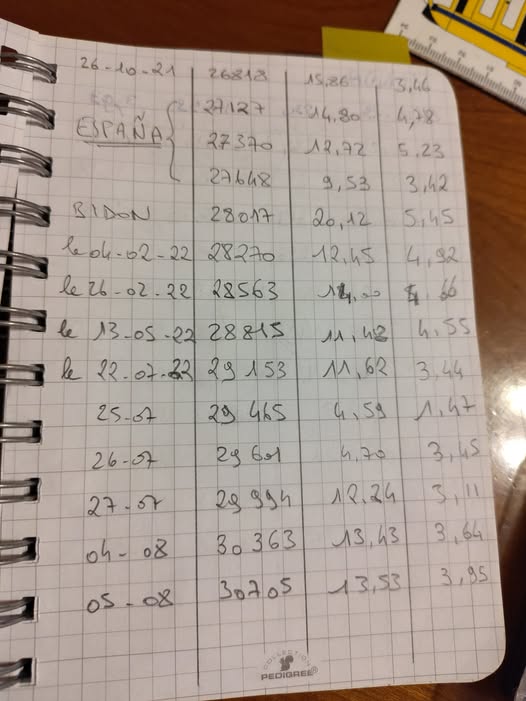 26-10-21 26818 15,86 3,46
27127 14,80 4,78
ESPAÑA 27370 12,72 5,23
27648 9,53 3,42
BIDON 28017 20,12 5,45
le 04-02-22 28270 12,45 4,92
le 26-02-22 28563 14,00 4,66
le 13-05-22 28815 11,42 4,55
le 22-07-22 29153 11,62 3,44
25-07 29465 4,59 1,47
26-07 29601 4,70 3,45
27-07 29994 12,24 3,11
04-08 30363 13,43 3,64
05-08 30705 13,53 3,95
COLLECTION
PEDIGREE®